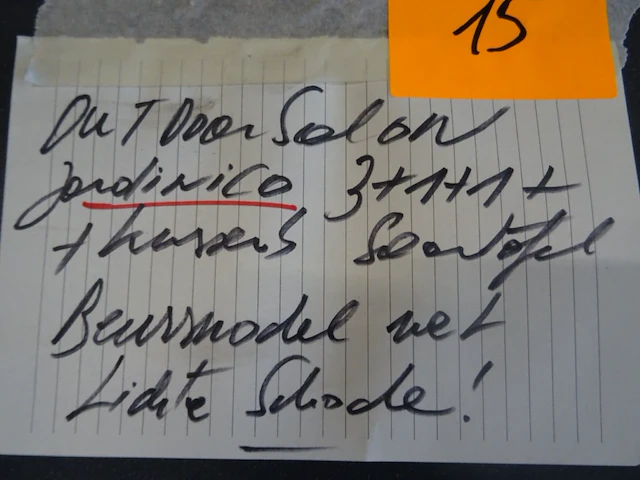 15
OUTDoor Salon
jardinico 3+1+1+
+ kussens Salontafel
Beursmodel met
Lichte Schade!